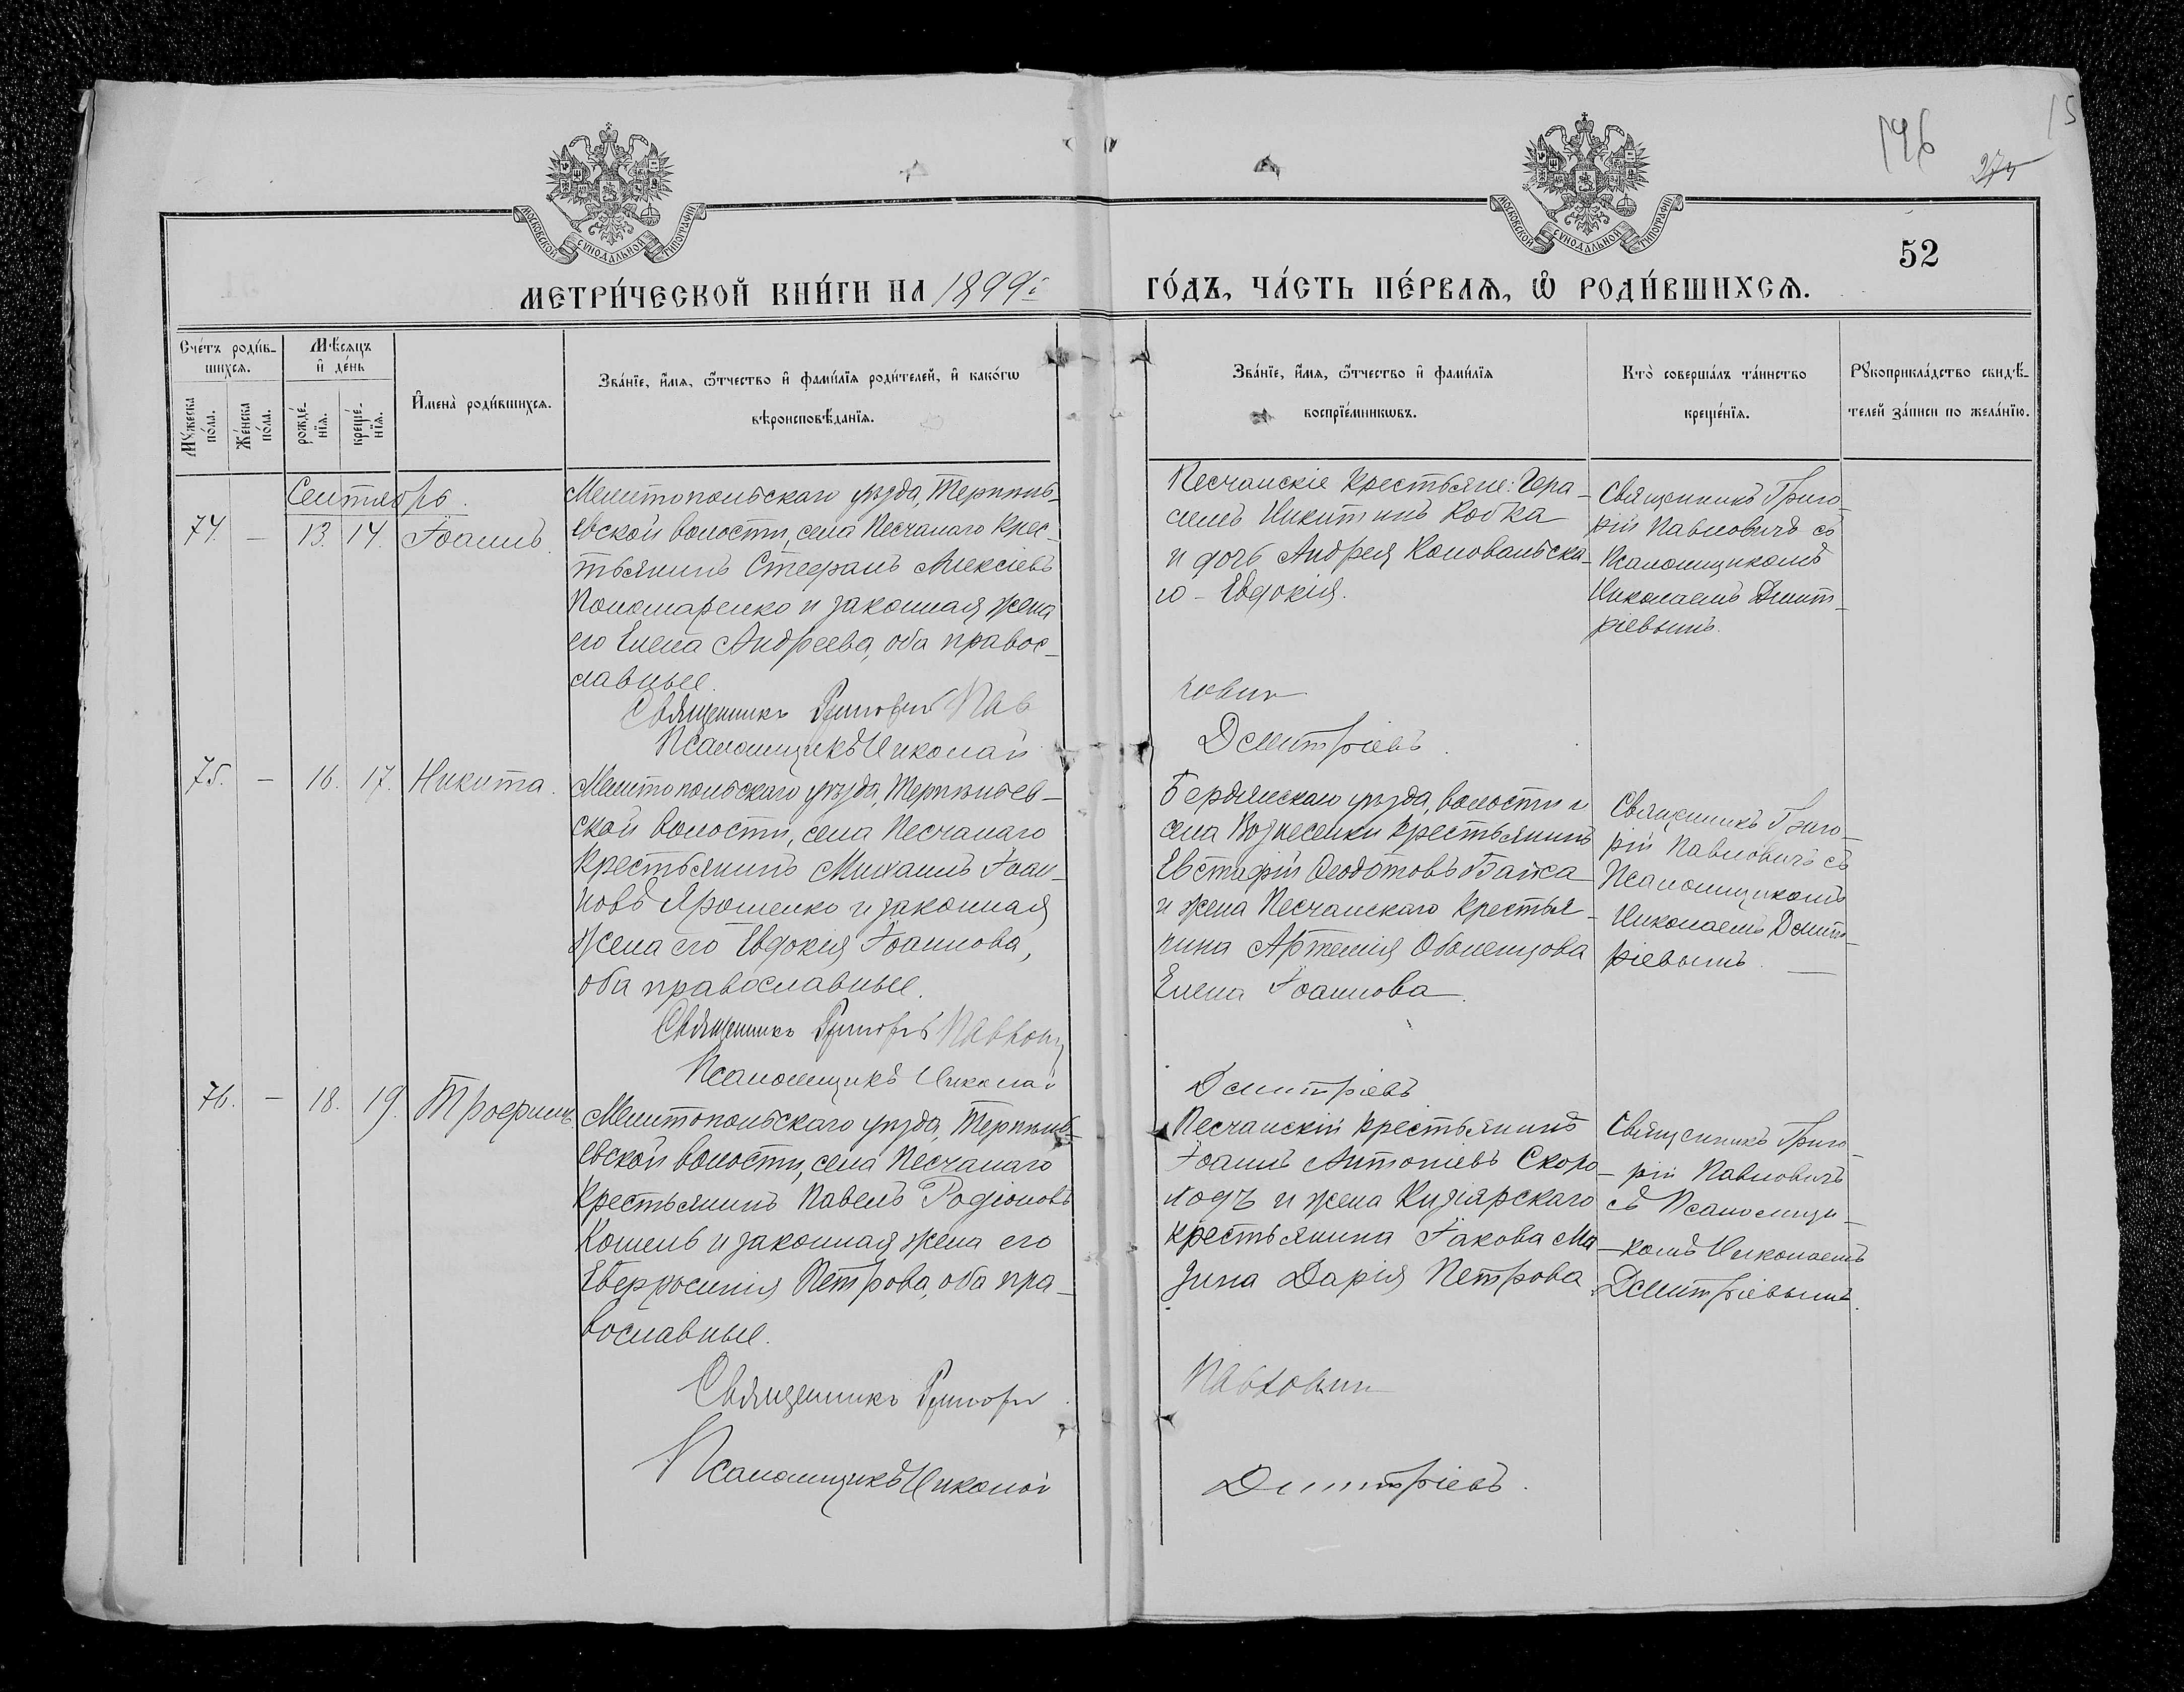 146
15
274
МОСКОВСКОЙ СѴНОДАЛЬНОЙ ТИПОГРАФІИ
МОСКОВСКОЙ СѴНОДАЛЬНОЙ ТИПОГРАФІИ
52
МЕТРИ́ЧЕСКОЙ КНИ́ГИ НА 1899й
ГО́ДЪ, ЧА́СТЬ ПЕ́РВАѦ, Ѡ҆ РОДИ́ВШИХСѦ.
Сче́тъ роди́в-
шихсѧ.
Мꙋ́жеска по́ла.
Же́нска по́ла.
Мѣ́сѧцъ
и҆ де́нь
рожде́-
нїѧ.
креще́-
нїѧ.
И҆мена̀ роди́вшихсѧ.
Зва́нїе, и҆́мѧ, ѻ҆́тчество и҆ фами́лїѧ роди́телей, и҆ како́гѡ
вѣроисповѣ́данїѧ.
Зва́нїе, и҆́мѧ, ѻ҆́тчество и҆ фами́лїѧ
воспрїе́мникѡвъ.
Кто̀ соверша́лъ та́инство
креще́нїѧ.
Рꙋкоприкла́дство свидѣ́-
телей за́писи по жела́нїю.
Сентябрь.
74. — 13. 14. Іоаннъ.
Мелитопольскаго уѣзда, Терпѣнь-
евской волости, села Песчанаго крес-
тьянинъ Стефанъ Алексіевъ
Пономаренко и законная жена
его Елена Андреева, оба правос-
лавные.
Священникъ Григорій Пав
Псаломщикъ Николай
Песчанскіе крестьяне: Гера-
симъ Никитинъ Кобка
и дочь Андрея Коновальска-
го - Евдокія.
ловичъ
Дмитріевъ.
Священникъ Григо-
рій Павловичъ съ
Псаломщикомъ
Николаемъ Дмит-
ріевымъ.
75. — 16. 17. Никита.
Мелитопольскаго уѣзда, Терпѣньев-
ской волости, села Песчанаго
крестьянинъ Михаилъ Іоан-
новъ Ярошенко и законная
жена его Евдокія Іоаннова,
оба православные.
Священникъ Григорій Павлович
Псаломщикъ Николай
Бердянскаго уѣзда, волости и
села Вознесенки крестьянинъ
Евстафій Ѳеодотовъ Байса
и жена Песчанскаго крестья-
нина Артемія Оболенцова
Елена Іоаннова.
Дмитріевъ
Священникъ Григо-
рій Павловичъ съ
Псаломщикомъ
Николаемъ Дмит-
ріевымъ. —
76. — 18. 19. Трофимъ.
Мелитопольскаго уѣзда, Терпѣнь-
евской волости, села Песчанаго
крестьянинъ Павелъ Родіоновъ
Кошель и законная жена его
Евфросинія Петрова, оба пра-
вославные.
Священникъ Григорій
Псаломщикъ Николай
Песчанскій крестьянинъ
Іоаннъ Антоніевъ Скоро-
ходъ и жена Кизіярскаго
крестьянина Іакова Ма-
зина Дарія Петрова.
Павловичъ
Дмитріевъ.
Священникъ Григо-
рій Павловичъ
съ Псаломщи-
комъ Николаемъ
Дмитріевымъ.